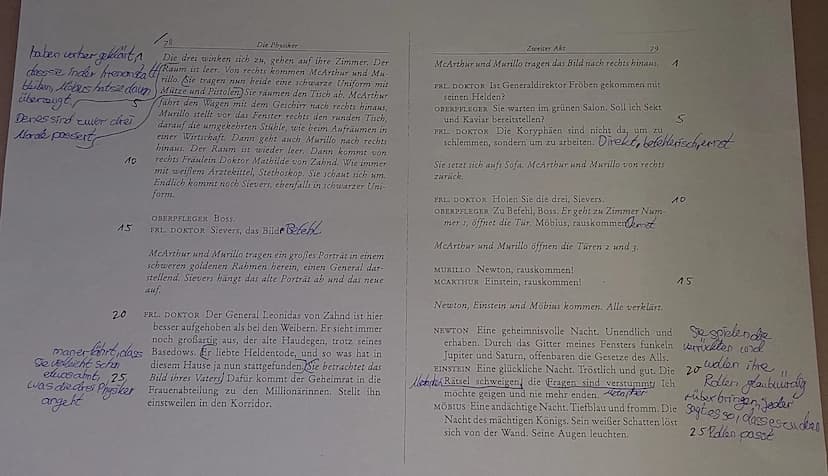 78
Die Physiker
haben vorher geklärt,
dass sie in der Irrenanstalt
bleiben, Möbius hat sie davon
überzeugt.
Denn es sind zuvor drei
Morde passiert
Die drei winken sich zu, gehen auf ihre Zimmer. Der
Raum ist leer. Von rechts kommen McArthur und Mu-
rillo. Sie tragen nun beide eine schwarze Uniform mit
Mütze und Pistolen. Sie räumen den Tisch ab. McArthur
fährt den Wagen mit dem Geschirr nach rechts hinaus,
Murillo stellt vor das Fenster rechts den runden Tisch,
darauf die umgekehrten Stühle, wie beim Aufräumen in
einer Wirtschaft. Dann geht auch Murillo nach rechts
hinaus. Der Raum ist wieder leer. Dann kommt von
10 rechts Fräulein Doktor Mathilde von Zahnd. Wie immer
mit weißem Ärztekittel, Stethoskop. Sie schaut sich um.
Endlich kommt noch Sievers, ebenfalls in schwarzer Uni-
form.
OBERPFLEGER Boss.
15 FRL. DOKTOR Sievers, das Bild. Befehl
McArthur und Murillo tragen ein großes Porträt in einem
schweren goldenen Rahmen herein, einen General dar-
stellend. Sievers hängt das alte Porträt ab und das neue
auf.
20 FRL. DOKTOR Der General Leonidas von Zahnd ist hier
besser aufgehoben als bei den Weibern. Er sieht immer
noch großartig aus, der alte Haudegen, trotz seines
Basedows. Er liebte Heldentode, und so was hat in
diesem Hause ja nun stattgefunden. Sie betrachtet das
25 Bild ihres Vaters. Dafür kommt der Geheimrat in die
Frauenabteilung zu den Millionärinnen. Stellt ihn
einstweilen in den Korridor.
man erfährt, dass
sie vielleicht schon
etwas ahnt,
was die drei Physiker
angeht
Zweiter Akt
79
McArthur und Murillo tragen das Bild nach rechts hinaus. 1
FRL. DOKTOR Ist Generaldirektor Fröben gekommen mit
seinen Helden?
OBERPFLEGER Sie warten im grünen Salon. Soll ich Sekt
und Kaviar bereitstellen? 5
FRL. DOKTOR Die Koryphäen sind nicht da, um zu
schlemmen, sondern um zu arbeiten. Direkt, befehlerisch, ernst
Sie setzt sich aufs Sofa. McArthur und Murillo von rechts
zurück.
FRL. DOKTOR Holen Sie die drei, Sievers. 10
OBERPFLEGER Zu Befehl, Boss. Er geht zu Zimmer Num-
mer 1, öffnet die Tür. Möbius, rauskommen! Ernst
McArthur und Murillo öffnen die Türen 2 und 3.
MURILLO Newton, rauskommen!
MCARTHUR Einstein, rauskommen! 15
Newton, Einstein und Möbius kommen. Alle verklärt.
NEWTON Eine geheimnisvolle Nacht. Unendlich und
erhaben. Durch das Gitter meines Fensters funkeln
Jupiter und Saturn, offenbaren die Gesetze des Alls.
EINSTEIN Eine glückliche Nacht. Tröstlich und gut. Die 20
Rätsel schweigen, die Fragen sind verstummt. Ich
möchte geigen und nie mehr enden.
MÖBIUS Eine andächtige Nacht. Tiefblau und fromm. Die
Nacht des mächtigen Königs. Sein weißer Schatten löst
sich von der Wand. Seine Augen leuchten. 25
Sie spielen die
verrückten und
wollen ihre
Rollen glaubwürdig
rüberbringen, jeder
sagt es so, dass es zu deren
Rollen passt